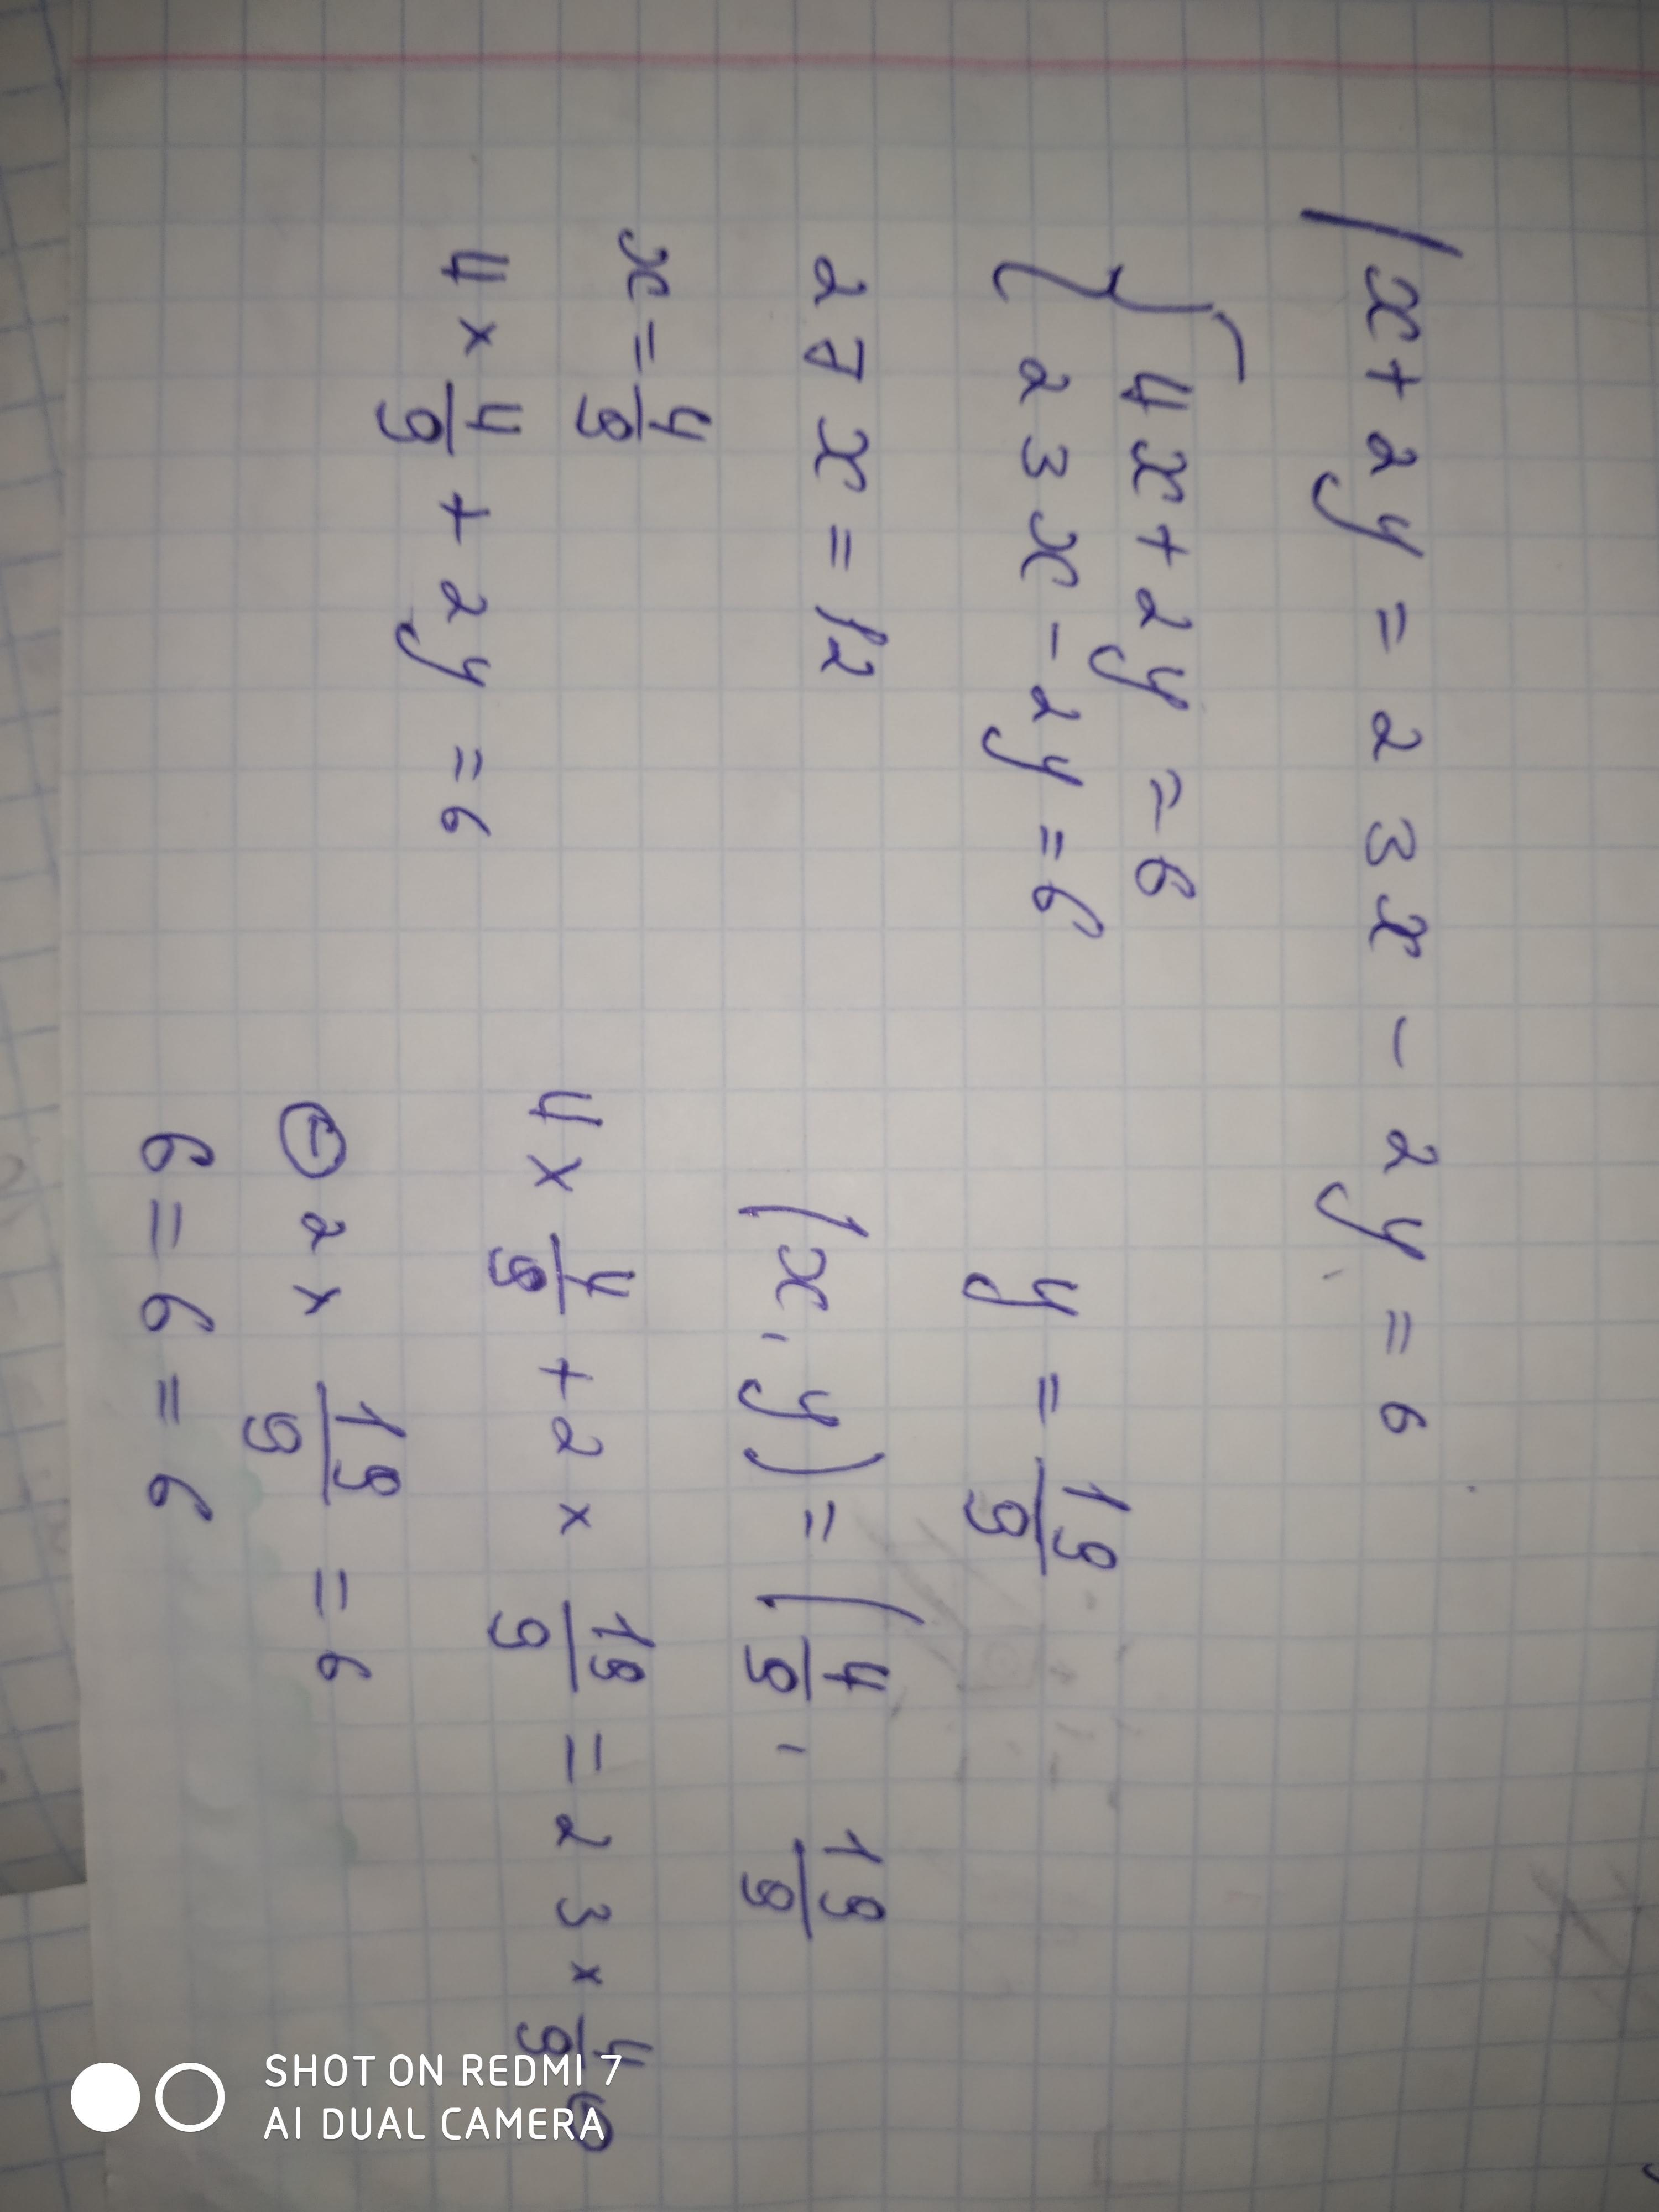 /x+2y=23x-2y=6
4x+2y=6
23x-2y=6
27x=12
x=4/9
4×4/9+2y=6
y=19/9
(x,y)=(4/9, 19/9
4×4/9+2×19/9=23×4/9⊖
⊖2×19/9=6
6=6=6
SHOT ON REDMI 7
AI DUAL CAMERA